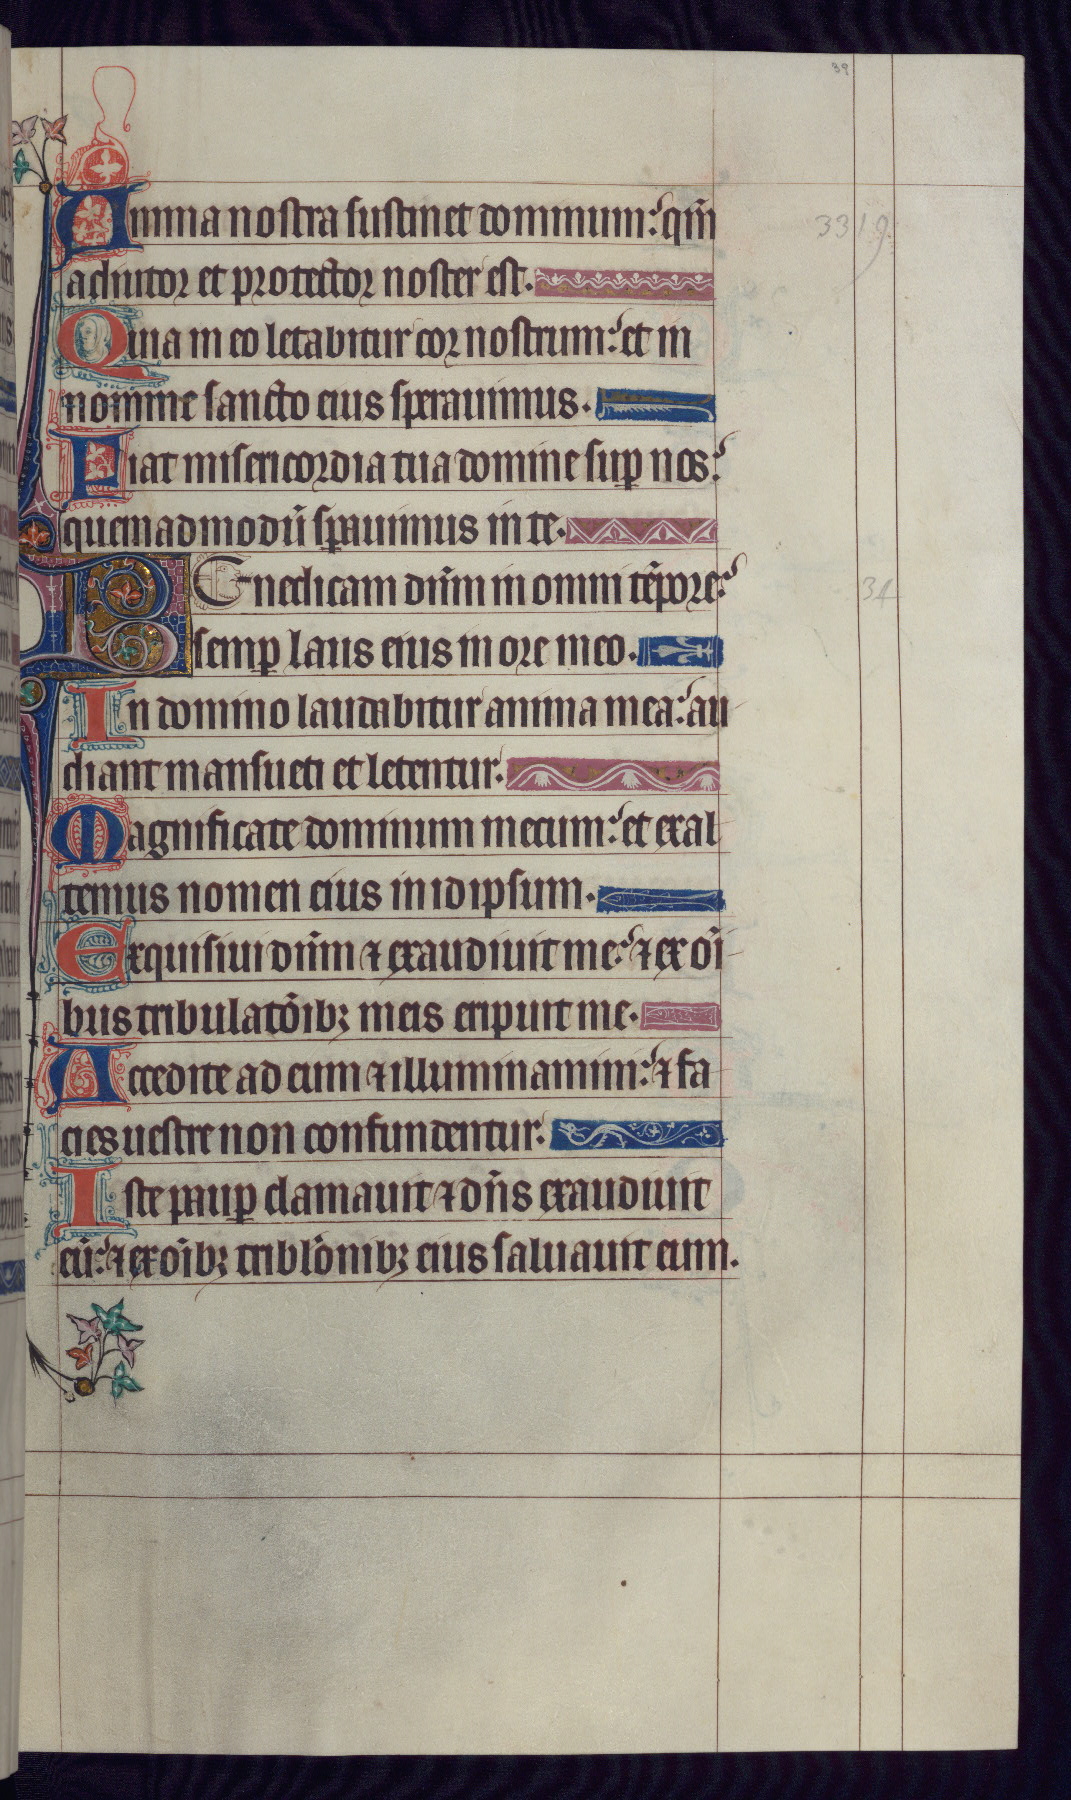 39
Anima nostra sustinet dominum: qm̄
3319
adiutor et protector noster est.
Quia in eo letabitur cor nostrum: et in
nomine sancto eius sperauimus.
Fiat misericordia tua domine sup̱ nos:
quemadmodū sp̱auimus in te.
BEnedicam dn̄m in omni tēpore:
34
semp̱ laus eius in ore meo.
In domino laudabitur anima mea: au
diant mansueti et letentur.
Magnificate dominum mecum: et exal
temus nomen eius in idipsum.
Exquisiui dn̄m ⁊ exaudiuit me: ⁊ ex oī
bus tribulatōibꝫ meis eripuit me.
Accedite ad eum ⁊ illuminamini: ⁊ fa
cies uestre non confundentur.
Iste paup̱ clamauit ⁊ dn̄s exaudiuit
eū: ⁊ ex oībꝫ tribl̄onibꝫ eius saluauit eum.